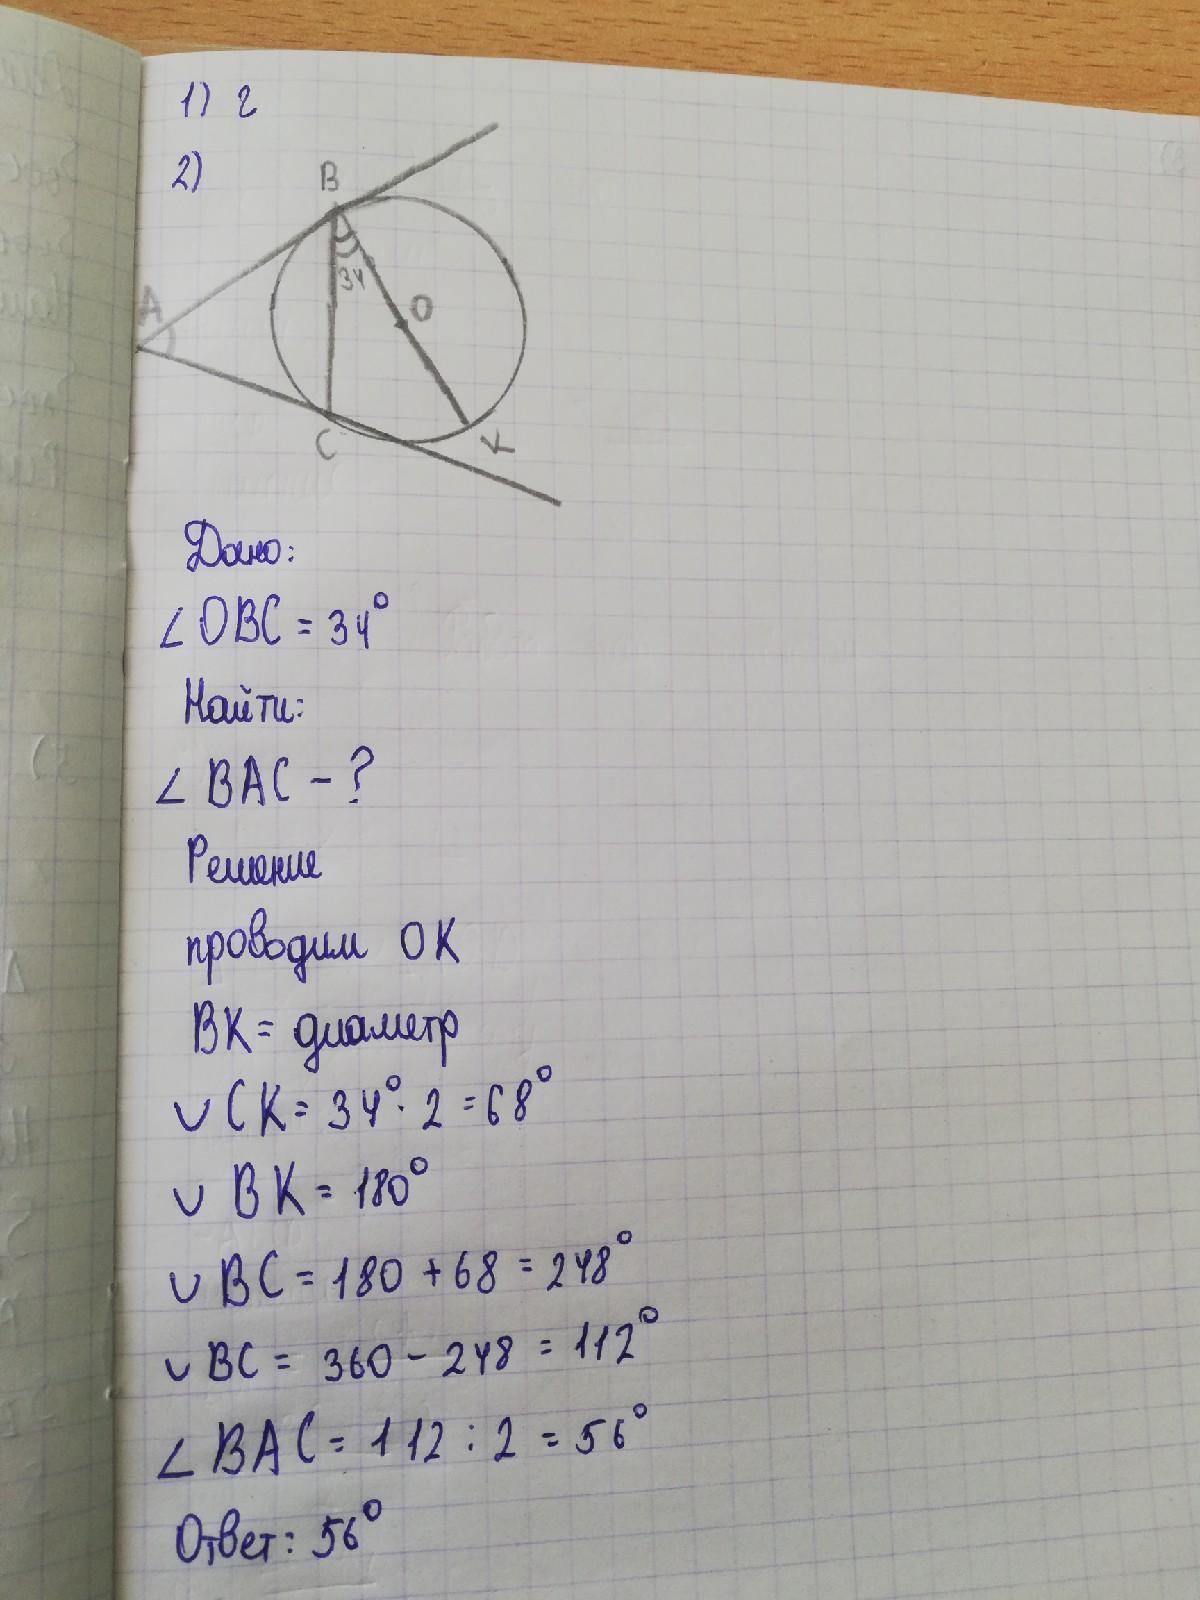 1) г
2)
B
34
O
A
C
K
Дано:
∠OBC = 34°
Найти:
∠ BAC - ?
Решение
проводим OK
BK = диаметр
∪ CK = 34° · 2 = 68°
∪ BK = 180°
∪ BC = 180 + 68 = 248°
∪ BC = 360 - 248 = 112°
∠ BAC = 112 : 2 = 56°
Ответ: 56°